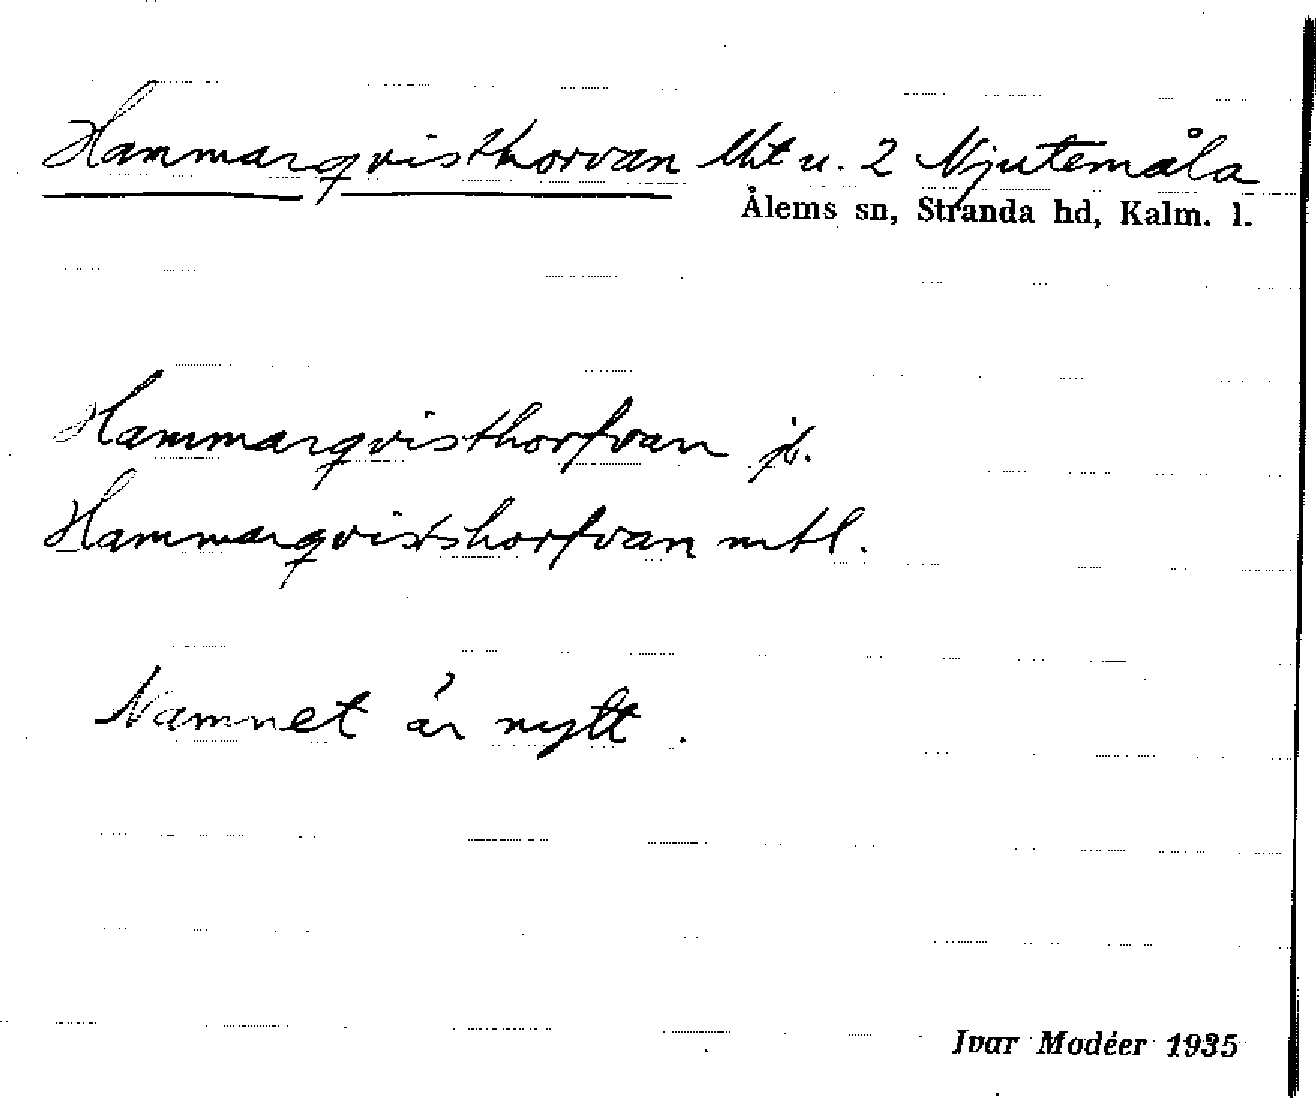 Hammarqvisthorvan Lht u. 2 Njutemåla
Ålems sn, Stranda hd, Kalm. l.
Hammarqvisthorfvan jb.
Hammarqvistshorfvan mtl.
Namnet är nytt.
Ivar Modéer 1935